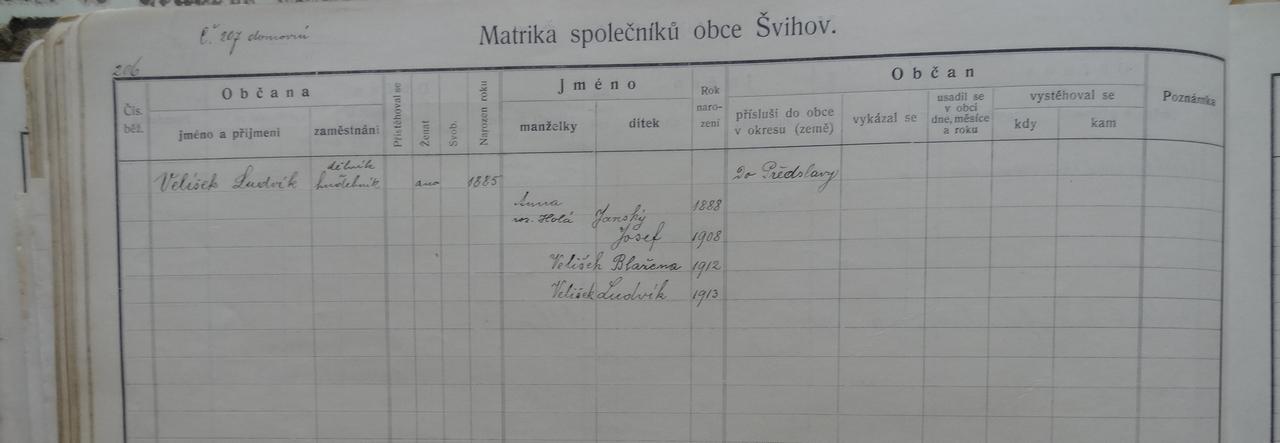 č. 207 domovní
Matrika společníků obce Švihov.
206
Čís. běž.
Občana
jméno a přijmení
zaměstnání
Přistěhoval se
Ženat
Svob.
Narozen roku
Jméno
manželky
dítek
Rok naro- zení
Občan
přísluší do obce v okresu (země)
vykázal se
usadil se v obci dne, měsíce a roku
vystěhoval se
kdy
kam
Poznámka
dělník
Velíšek Ludvík hudebník ano 1885 Do Předslavy
Anna 1888
roz. Holá Janský
Josef 1908
Velíšek Blažena 1912
Velíšek Ludvík 1913